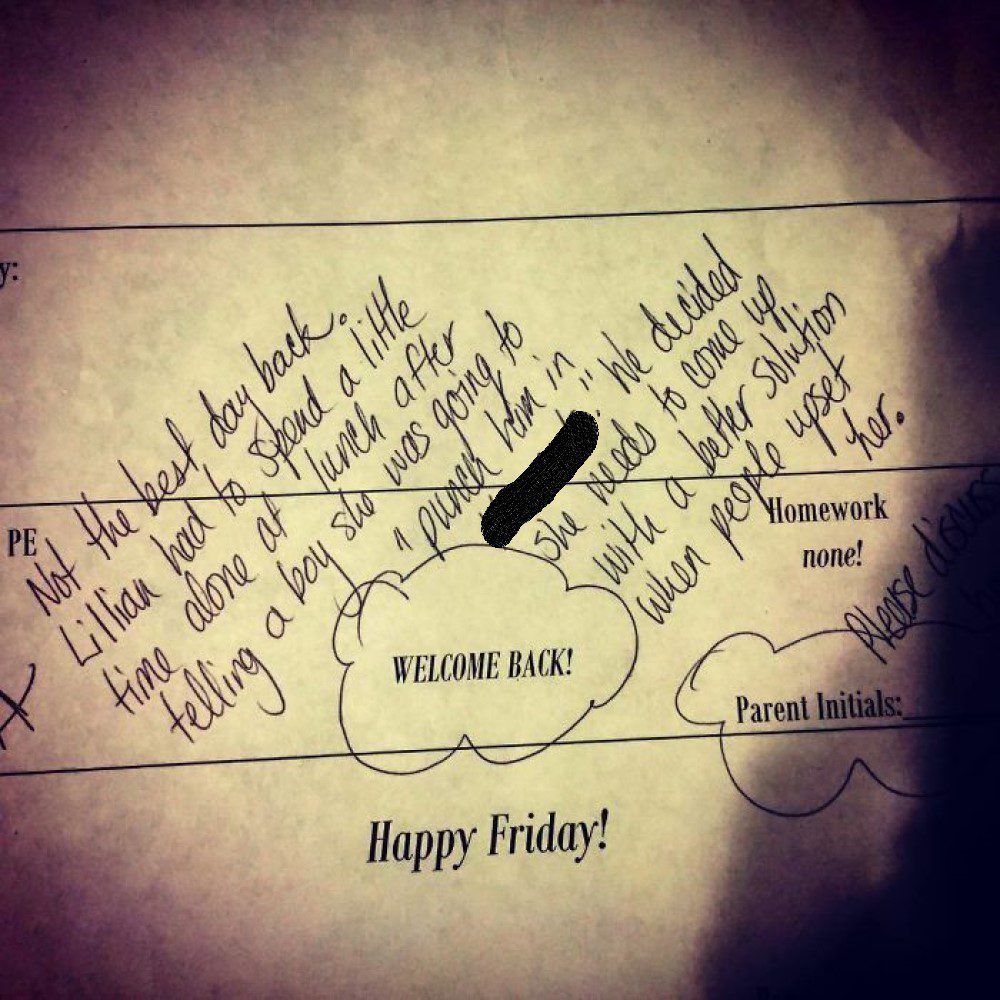 y:
Not the best day back.
Lillian had to spend a little
time alone at lunch after
telling a boy she was going to
"punch him in
". We decided
she needs to come up
with a better solution
when people upset
her.
PE
Homework
none!
Please discuss
WELCOME BACK!
Parent Initials:
Happy Friday!